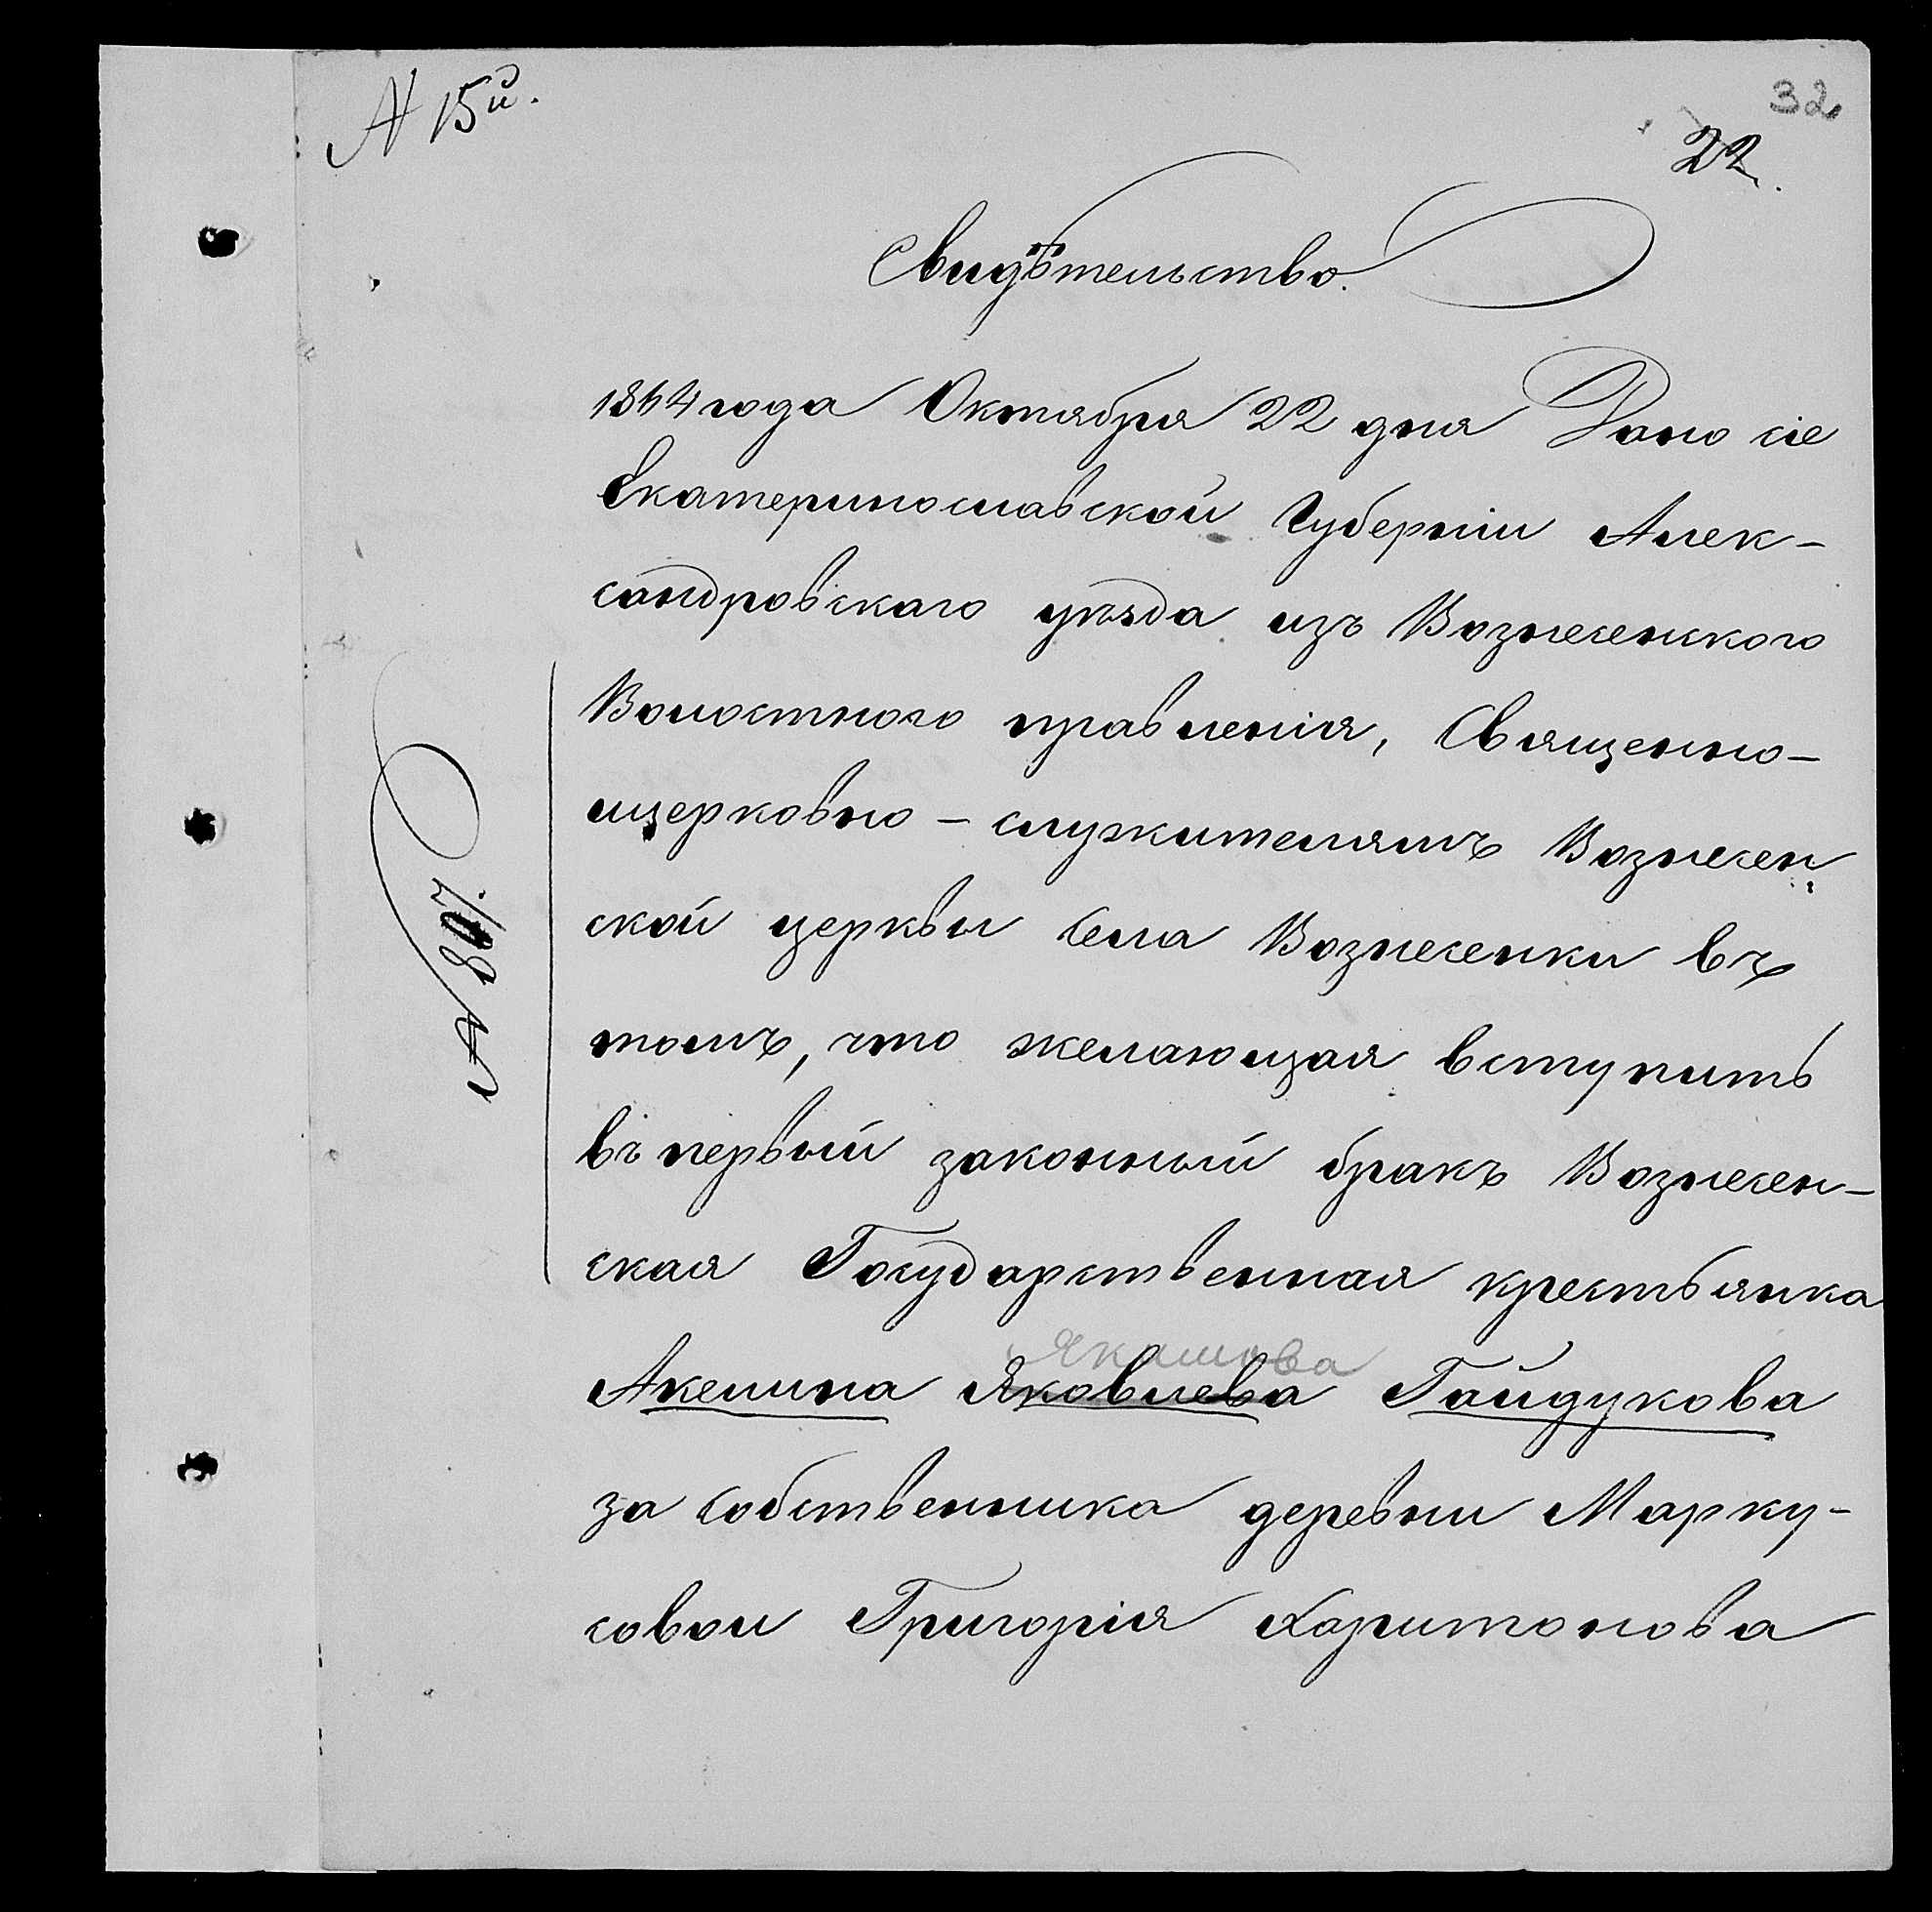 № 15й.
32
22.
Свидѣтельство.
1864 года Октября 22 дня Дано сіе
Екатеринославской Губерніи Алек-
сандровскаго уѣзда изъ Вознесенского
Волостного правленія, Священно-
церковно-служителямъ Вознесен
ской церкви села Вознесенки въ
томъ, что желающая вступить
въ первый законный бракъ Вознесен-
ская Государственная крестьянка
Якимова
Акелина Яковлева Гайдукова
за собственника деревни Марку-
совои Григорія Харитонова